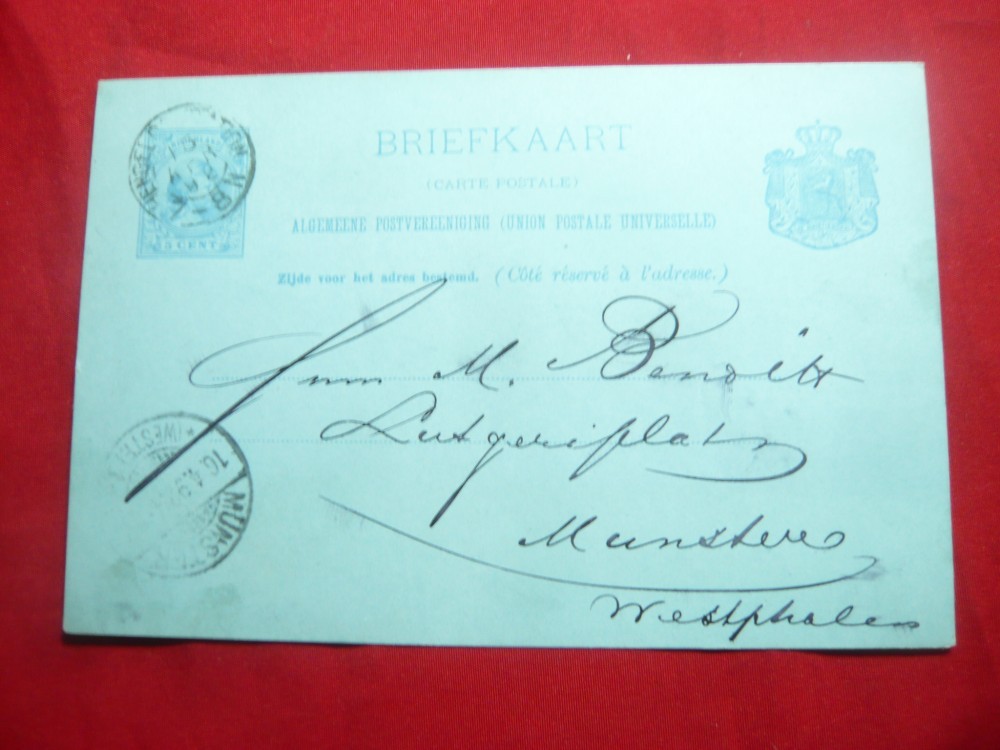 BRIEFKAART
(CARTE POSTALE)
ALGEMEENE POSTVEREENIGING (UNION POSTALE UNIVERSELLE)
Zijde voor het adres bestemd. (Côté réservé à l'adresse.)
5 CENT
M. Benoitt
Lutgeriplatz
Munster
Westphalen
MÜNSTER
(WESTF
16.4.9